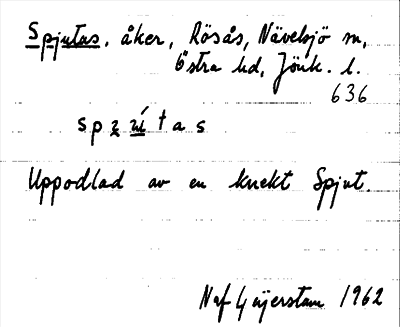 Spjutas, åker, Rösås, Nävelsjö sn,
Östra hd, Jönk. l.
636
s p z ú t a s
Uppodlad av en knekt Spjut.
Naf Gäijerstam 1962